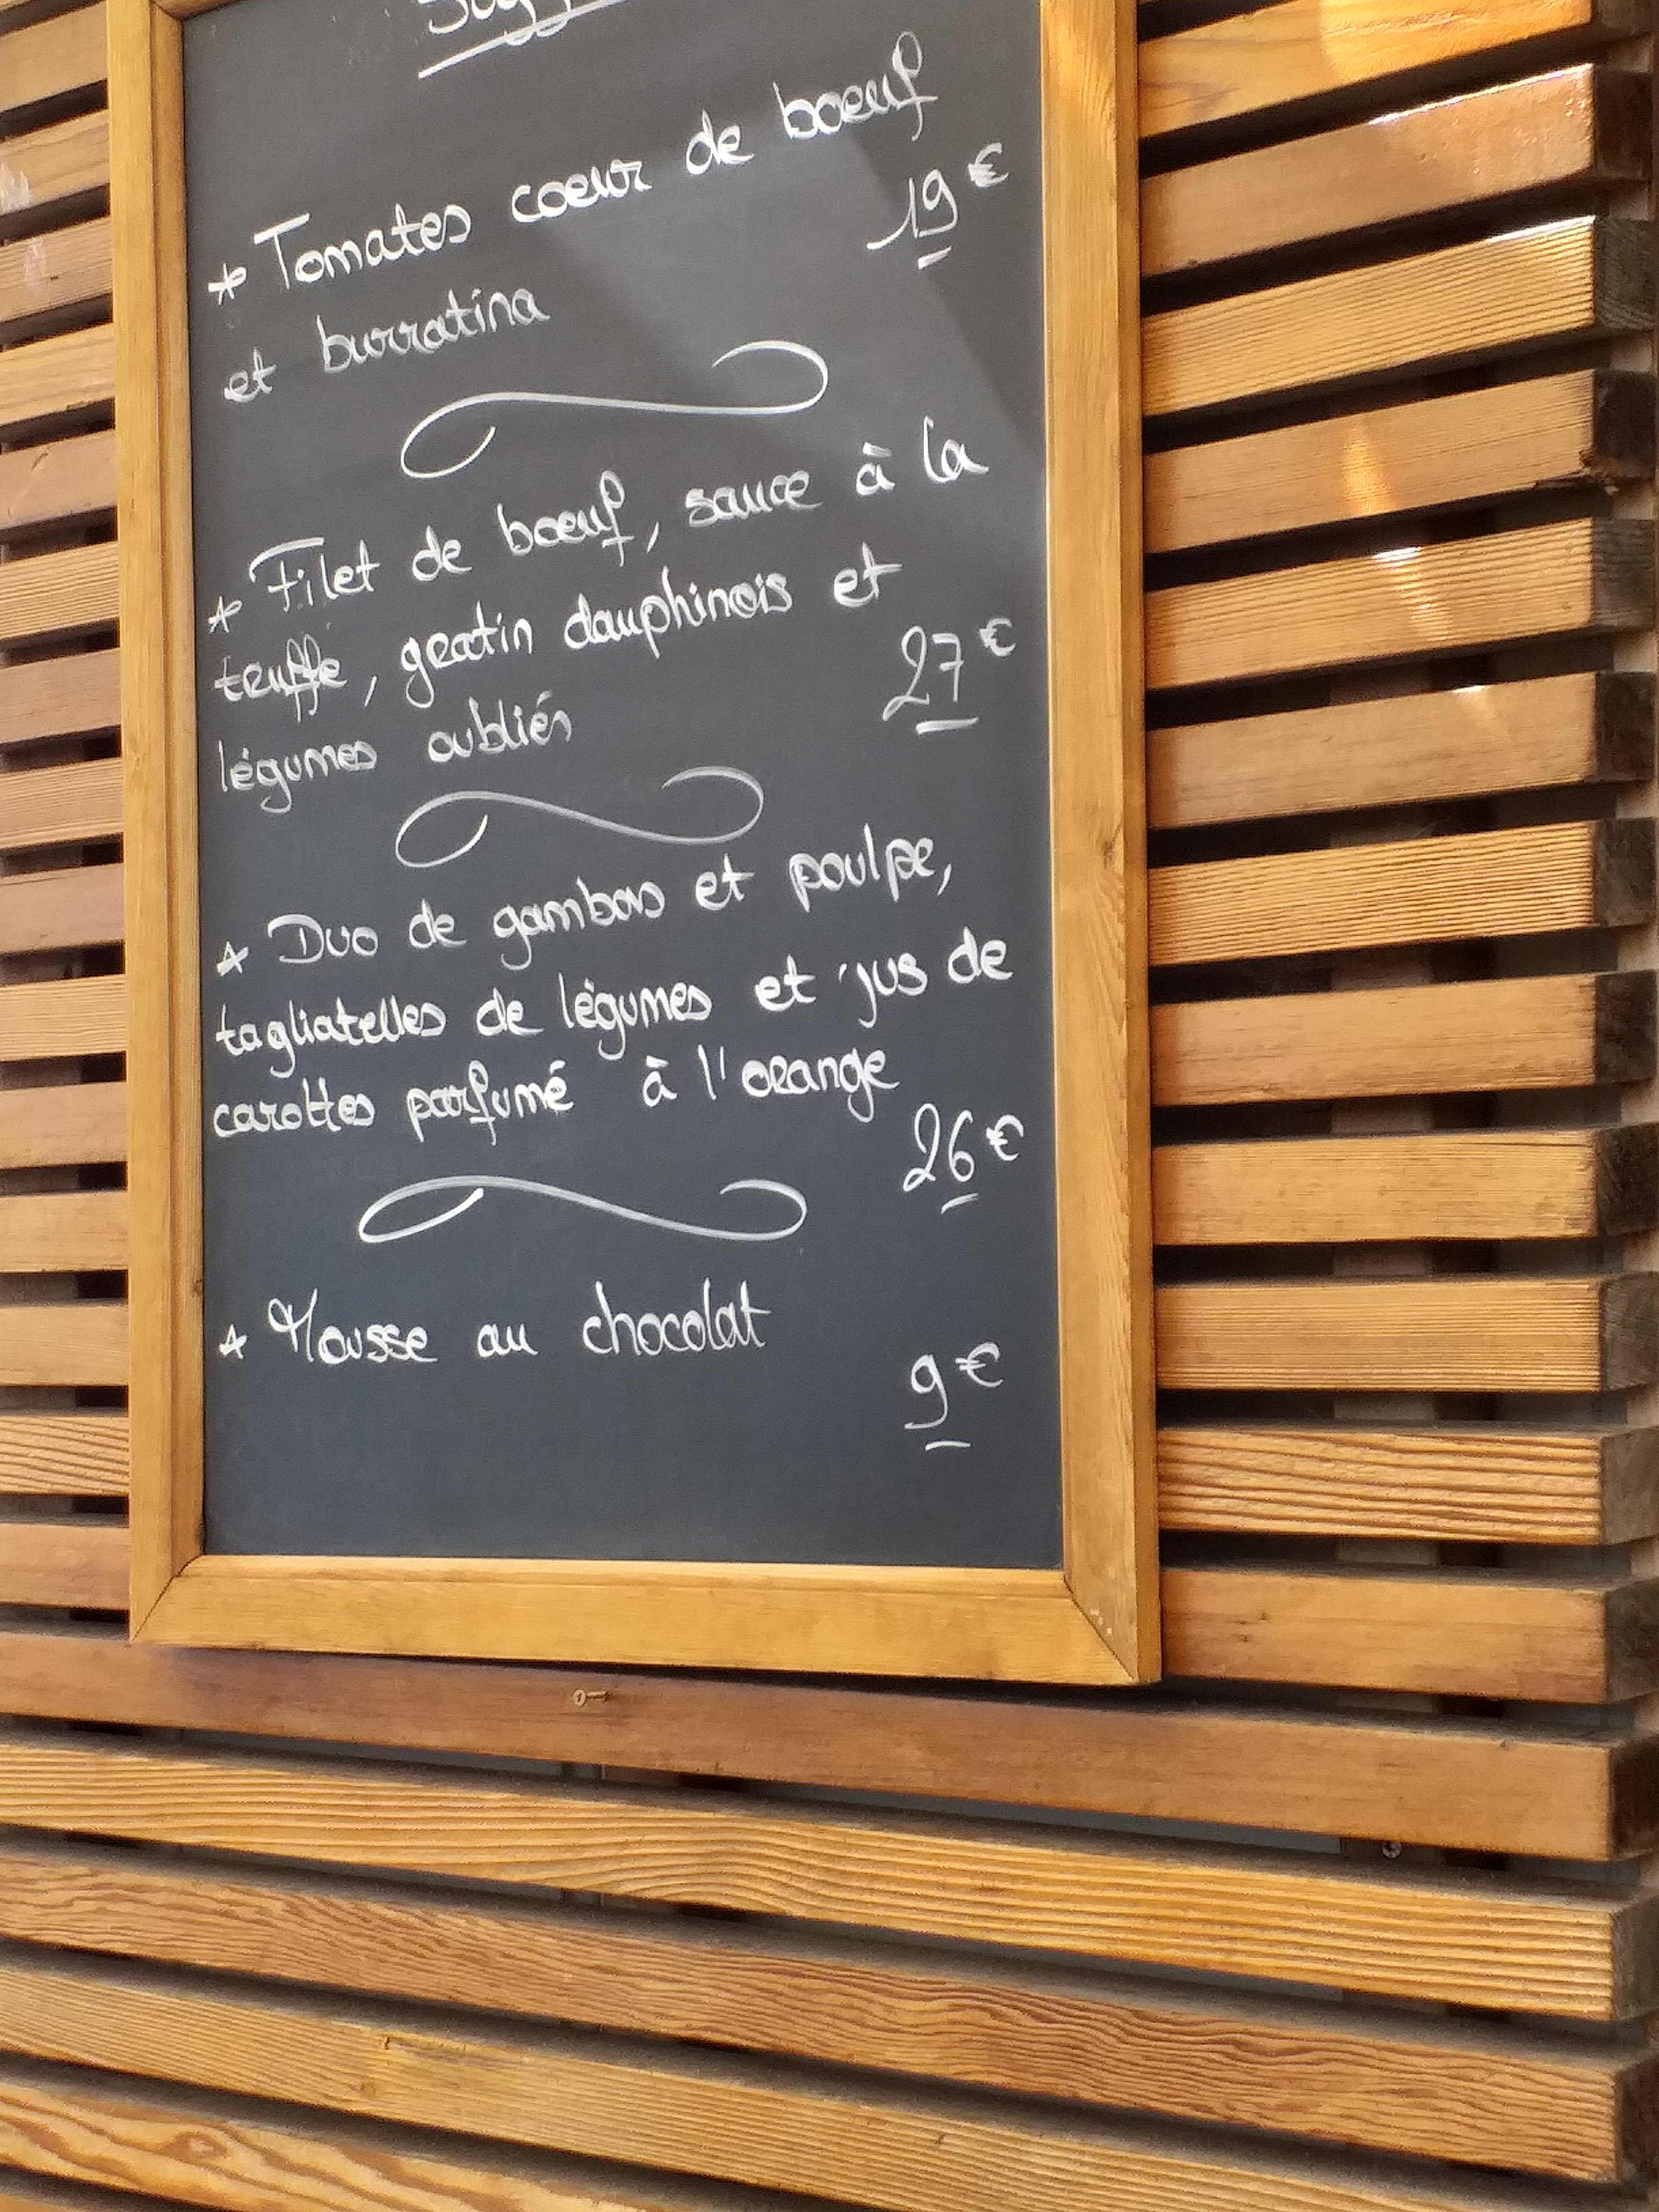 * Tomates coeur de boeuf
19€
et burratina
* Filet de boeuf, sauce à la
truffe, gratin dauphinois et
27€
légumes oubliés
* Duo de gambas et poulpe,
tagliatelles de légumes et jus de
carottes parfumé à l'orange
26€
* Mousse au chocolat
9€